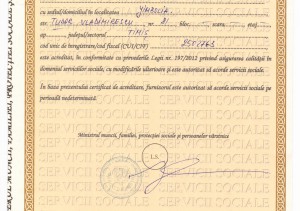 cu sediul/domiciliul în localitatea JIMBOLIA
str. TUDOR VLADIMIRESCU nr. 81 bloc, scara
ap. județul/sectorul TIMIȘ
cod unic de înregistrare/cod fiscal (CUI/CIF)
este acreditat, în conformitate cu prevederile Legii nr. 197/2012 privind asigurarea calității în
domeniul serviciilor sociale, cu modificările ulterioare și este autorizat să acorde servicii sociale.
În baza prezentului certificat de acreditare, furnizorul este autorizat să acorde servicii sociale pe
perioadă nedeterminată.
Ministrul muncii, familiei, protecției sociale și persoanelor vârstnice
L.S.
SERVICII SOCIALE
MUNCII, FAMILIEI, PROTECȚIEI SOCIALE